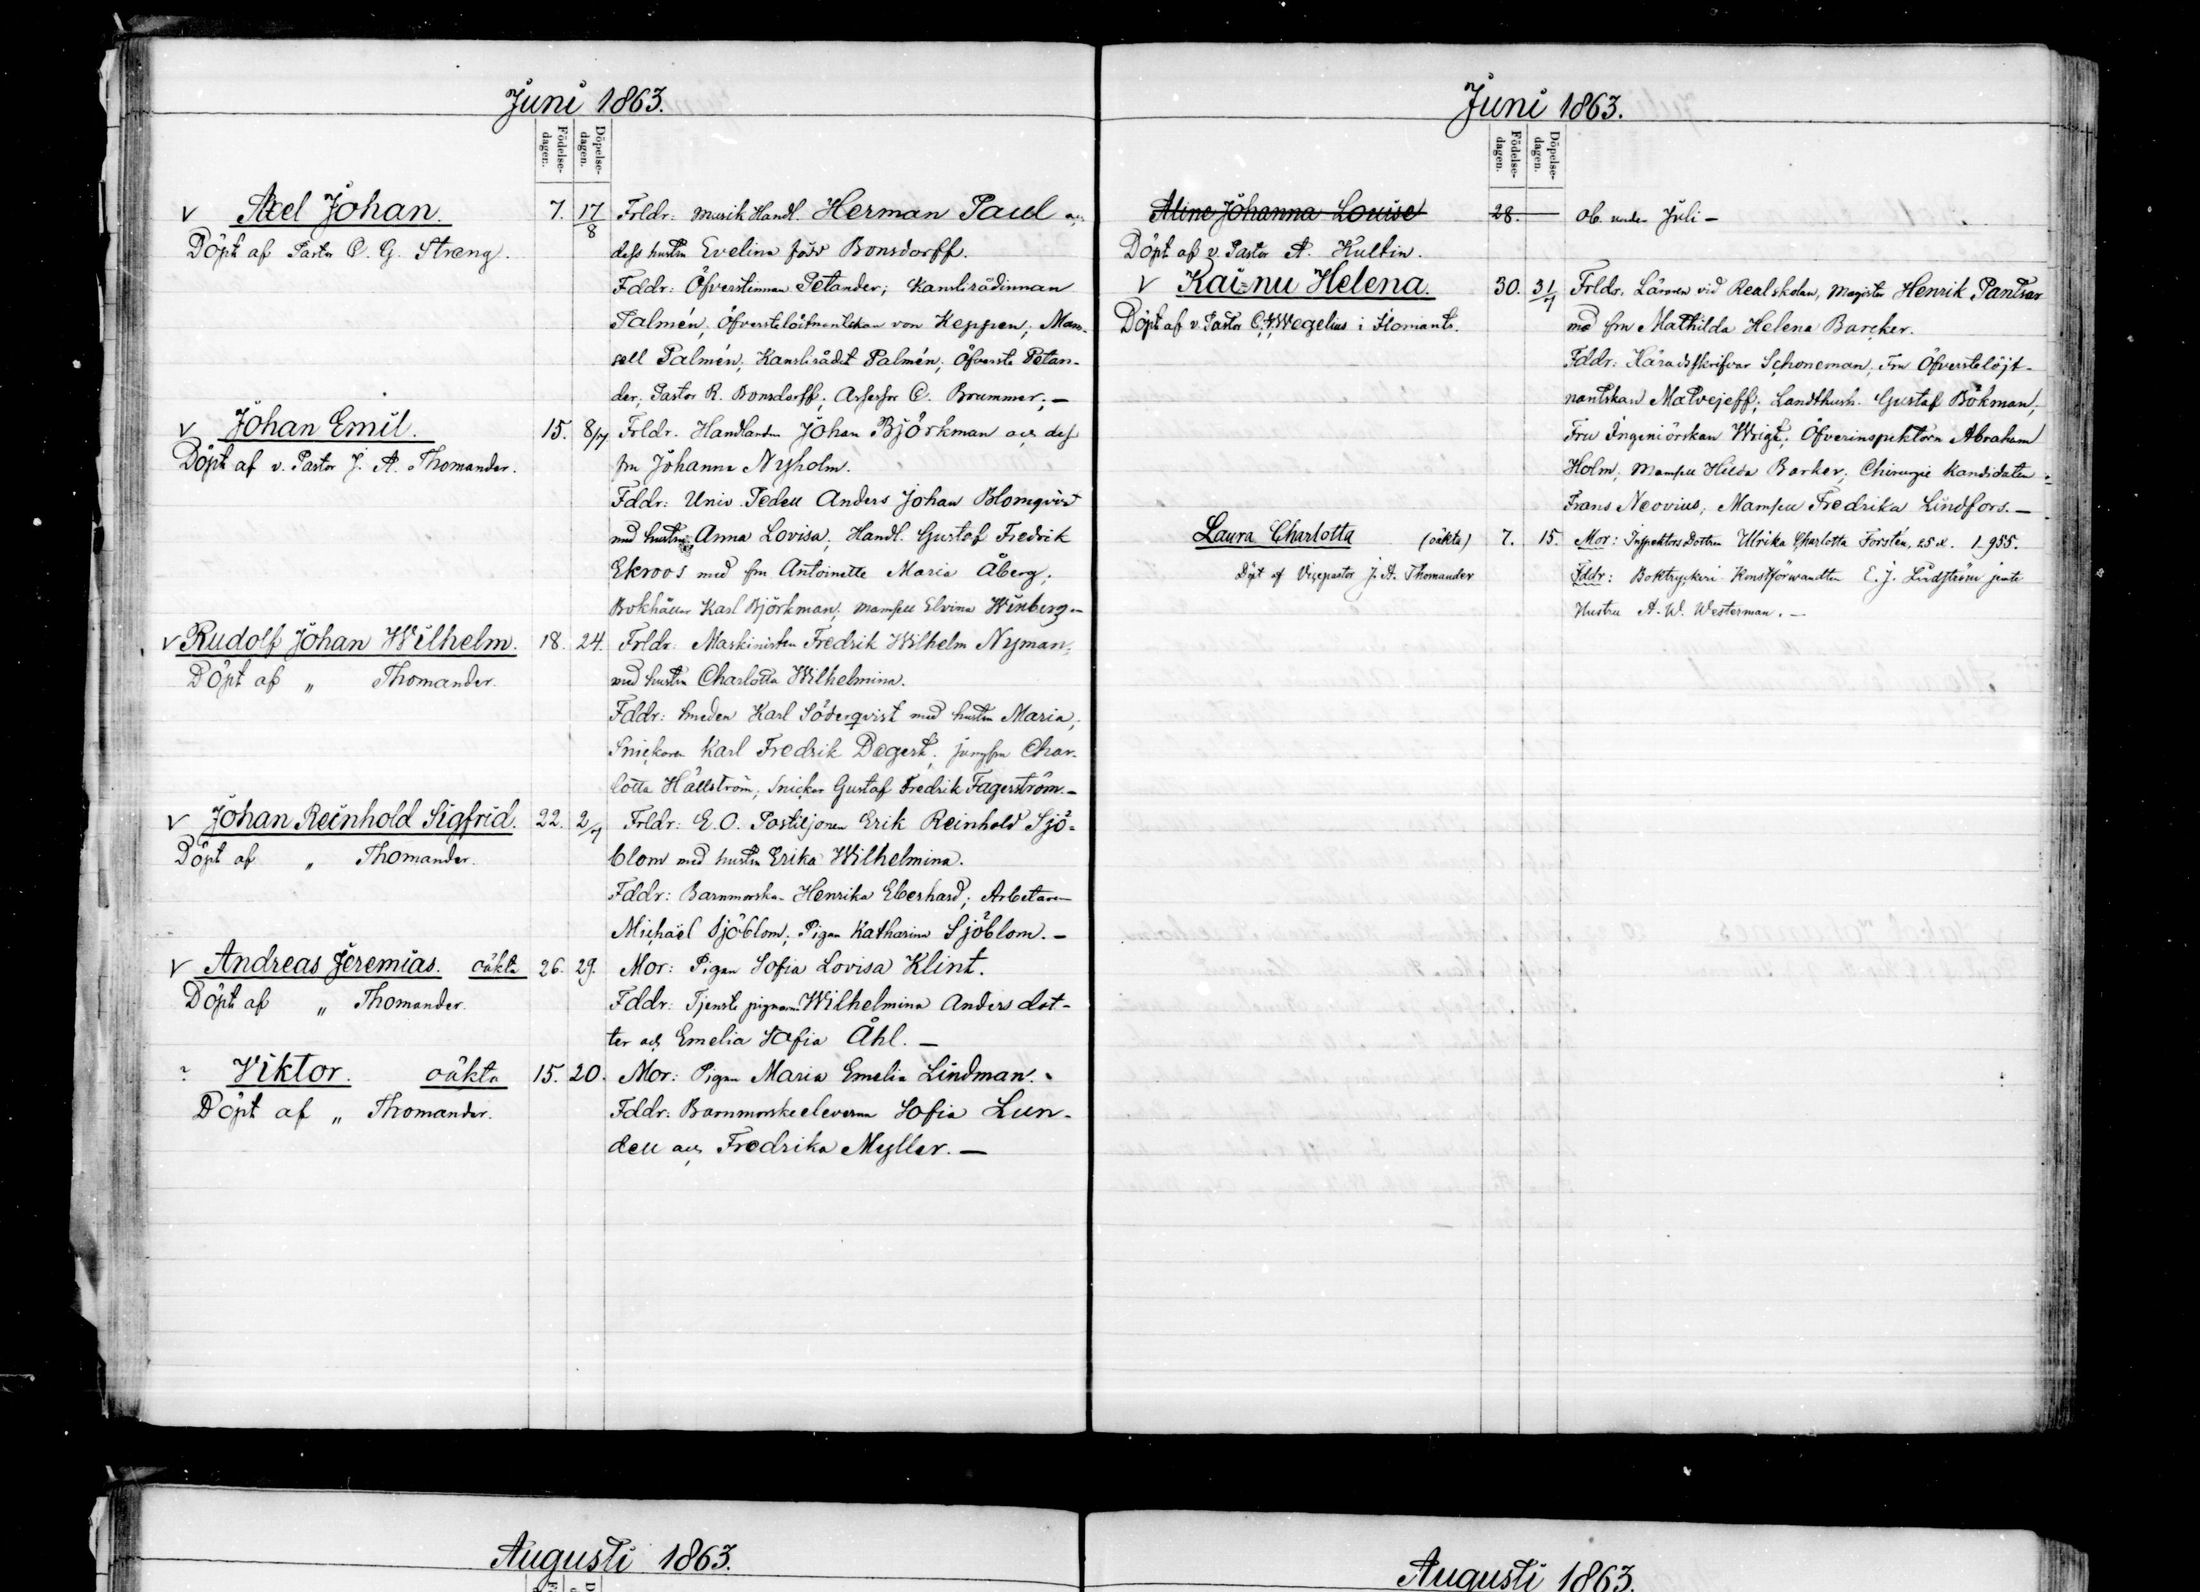 Juni 1863.
Födelse-dagen.
Döpelse-dagen.
v Axel Johan. 7. 17/8 Frldr: Musik Handl. Herman Paul och
Döpt af Pastor C. G. Streng. dess hustru Evelina född Bonsdorff.
Fddr: Öfverstinnan Petander; Kanslirådinnan
Palmén; Öfverstelöitnantskan von Keppen; Mam-
sell Palmén; Kanslirådet Palmén; Öfverste Petan-
der; Pastor R. Bonsdorff; Assessor C. Brummer; —
v Johan Emil. 15. 8/7 Frldr. Handlanden Johan Björkman och dess
Döpt af v. Pastor J. A. Thomander. fru Johanna Nyholm.
Fddr: Univ. Pedell Anders Johan Blomqvist
med hustru Anna Lovisa; Handl. Gustaf Fredrik
Ekroos med fru Antoinette Maria Åberg;
Bokhållar Karl Björkman; Mamsell Elvina Winberg —
v Rudolf Johan Wilhelm. 18. 24. Frldr: Maskinisten Fredrik Wilhelm Nyman,
Döpt af „ Thomander. med hustru Charlotta Wilhelmina.
Fddr: Smeden Karl Söderqvist med hustru Maria;
Snickaren Karl Fredrik Degert; jungfru Char-
lotta Hällström; Snickar Gustaf Fredrik Fagerström. —
v Johan Reinhold Sigfrid. 22. 2/7 Frldr: E. O. Postiljonen Erik Reinhold Sjö-
Döpt af „ Thomander. blom med hustru Erika Wilhelmina.
Fddr: Barnmorskan Henrika Eberhard; Arbetaren
Michaël Sjöblom; Pigan Katharina Sjöblom. —
v Andreas Jeremias. oäkta 26. 29. Mor: Pigan Sofia Lovisa Klint.
Döpt af „ Thomander. Fddr: Tjenste pigorna Wilhelmina Anders dot-
ter och Emelia Sofia Åhl. —
Viktor. oäkta 15. 20. Mor: Pigan Maria Emelia Lindman.
Döpt af „ Thomander. Fddr: Barnmorskeeleverna Sofia Lun-
dell och Fredrika Myller. —
Juni 1863.
Födelse-dagen.
Döpelse-dagen.
Aline Johanna Louise 28. — ob. under Juli —
Döpt af v. Pastor A. Hultin.
v Kai-nu Helena. 30. 31/7 Frldr. Läraren vid Realskolan, Magister Henrik Pantsar
Döpt af v. Pastor Wegelius i Ilomants. med fru Mathilda Helena Barcker.
Fddr: Häradsskrifvar Schoneman; Fru Öfverstelöjt-
nantskan Matvejeff; Landthush. Gustaf Bökman;
Fru Ingeniörskan Wrigt; Öfverinspektorn Abraham
Holm; Mamsell Hilda Barker; Chirurgie Kandidaten
Frans Neovius; Mamsell Fredrika Lindfors. —
Laura Charlotta (oäkta) 7. 15. Mor: Inspektors Dottren Ulrika Charlotta Forstén, 25 år. 1_955.
Döpt af Vicepastor J. A. Thomander Fddr: Boktryckeri Konstförwandten E. J. Lindström jemte
Hustru A. W. Westerman. —
Augusti 1863.
Augusti 1863.